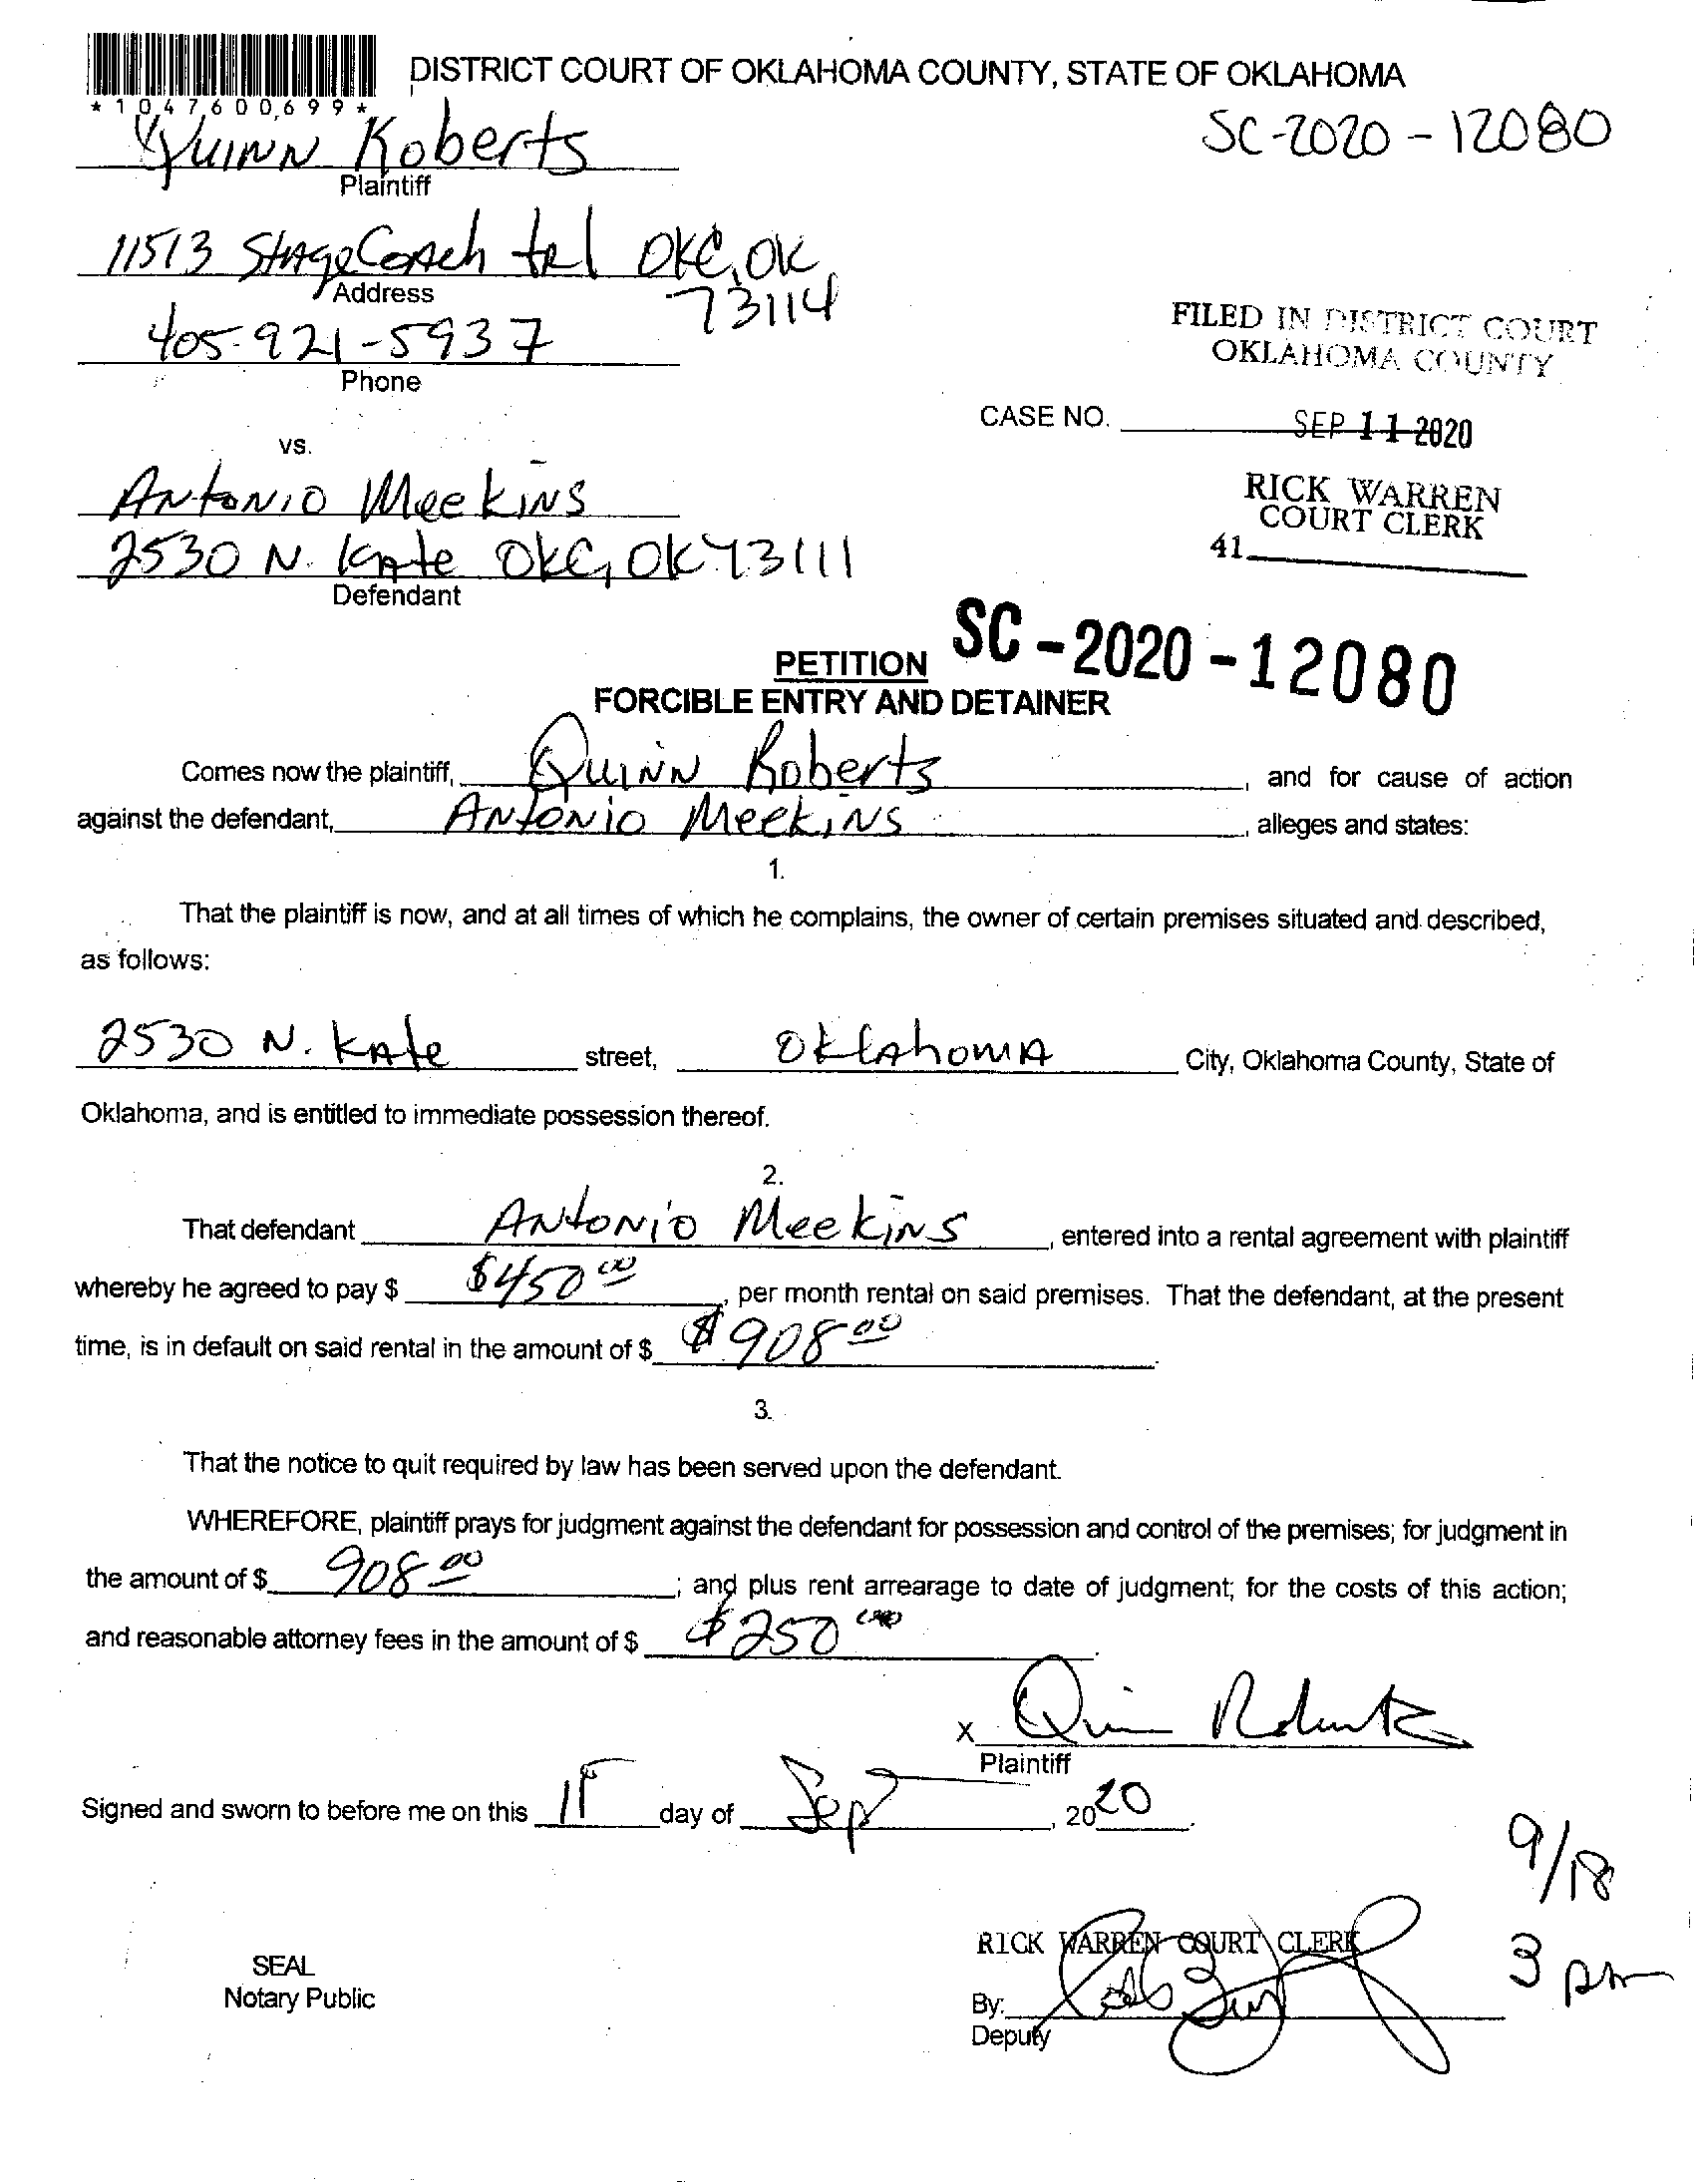 DISTRICT COURT OF OKLAHOMA COUNTY, STATE OF OKLAHOMA
*1047600699*
Quinn Roberts
SC-2020-12080
Plaintiff
11513 StageCoach trl OKC, OK
73114
Address
405-921-5937
Phone
FILED IN DISTRICT COURT
OKLAHOMA COUNTY
CASE NO.
SEP 11 2020
vs.
RICK WARREN
COURT CLERK
41
Antonio Meekins
2530 N. Kate OKC, OK 73111
Defendant
PETITION
SC-2020-12080
FORCIBLE ENTRY AND DETAINER
Comes now the plaintiff, Quinn Roberts, and for cause of action
against the defendant, Antonio Meekins, alleges and states:
1.
That the plaintiff is now, and at all times of which he complains, the owner of certain premises situated and described,
as follows:
2530 N. Kate street, Oklahoma City, Oklahoma County, State of
Oklahoma, and is entitled to immediate possession thereof.
2.
That defendant Antonio Meekins, entered into a rental agreement with plaintiff
whereby he agreed to pay $ $450 00, per month rental on said premises. That the defendant, at the present
time, is in default on said rental in the amount of $ $908 00.
3.
That the notice to quit required by law has been served upon the defendant.
WHEREFORE, plaintiff prays for judgment against the defendant for possession and control of the premises; for judgment in
the amount of $ 908 00; and plus rent arrearage to date of judgment; for the costs of this action;
and reasonable attorney fees in the amount of $ $250 00.
x Quinn Roberts
Plaintiff
Signed and sworn to before me on this 11 day of Sep, 2020.
9/18
3 pm
RICK WARREN COURT CLERK
SEAL
Notary Public
By:
Deputy